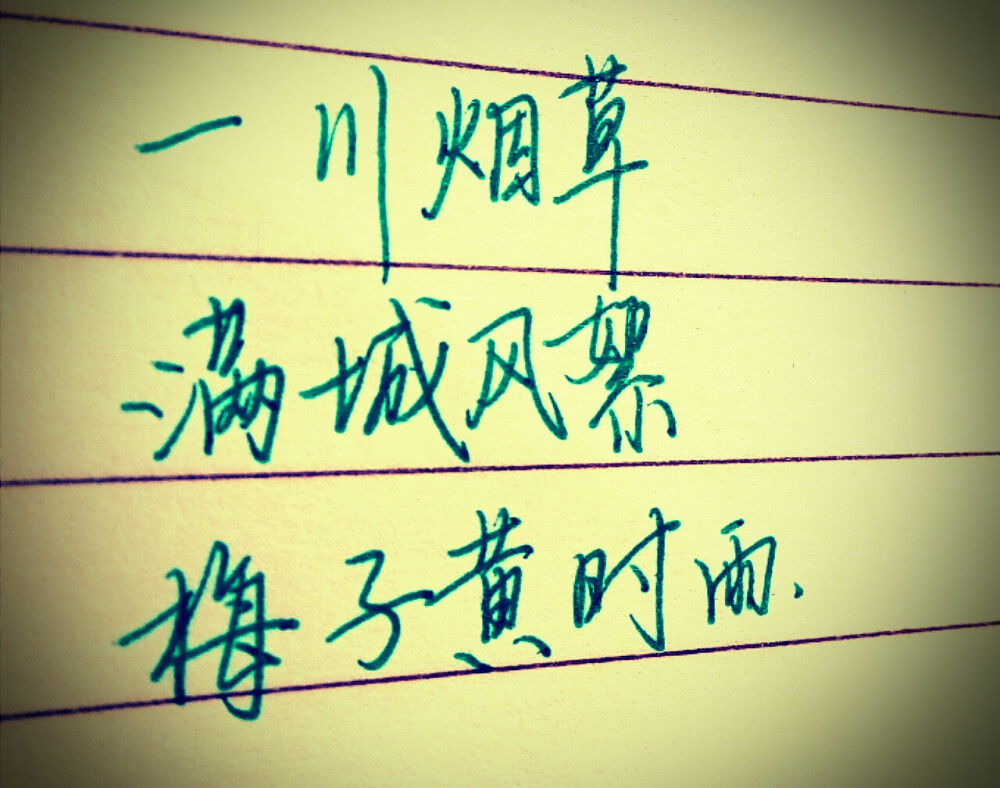 一川烟草
满城风絮
梅子黄时雨.